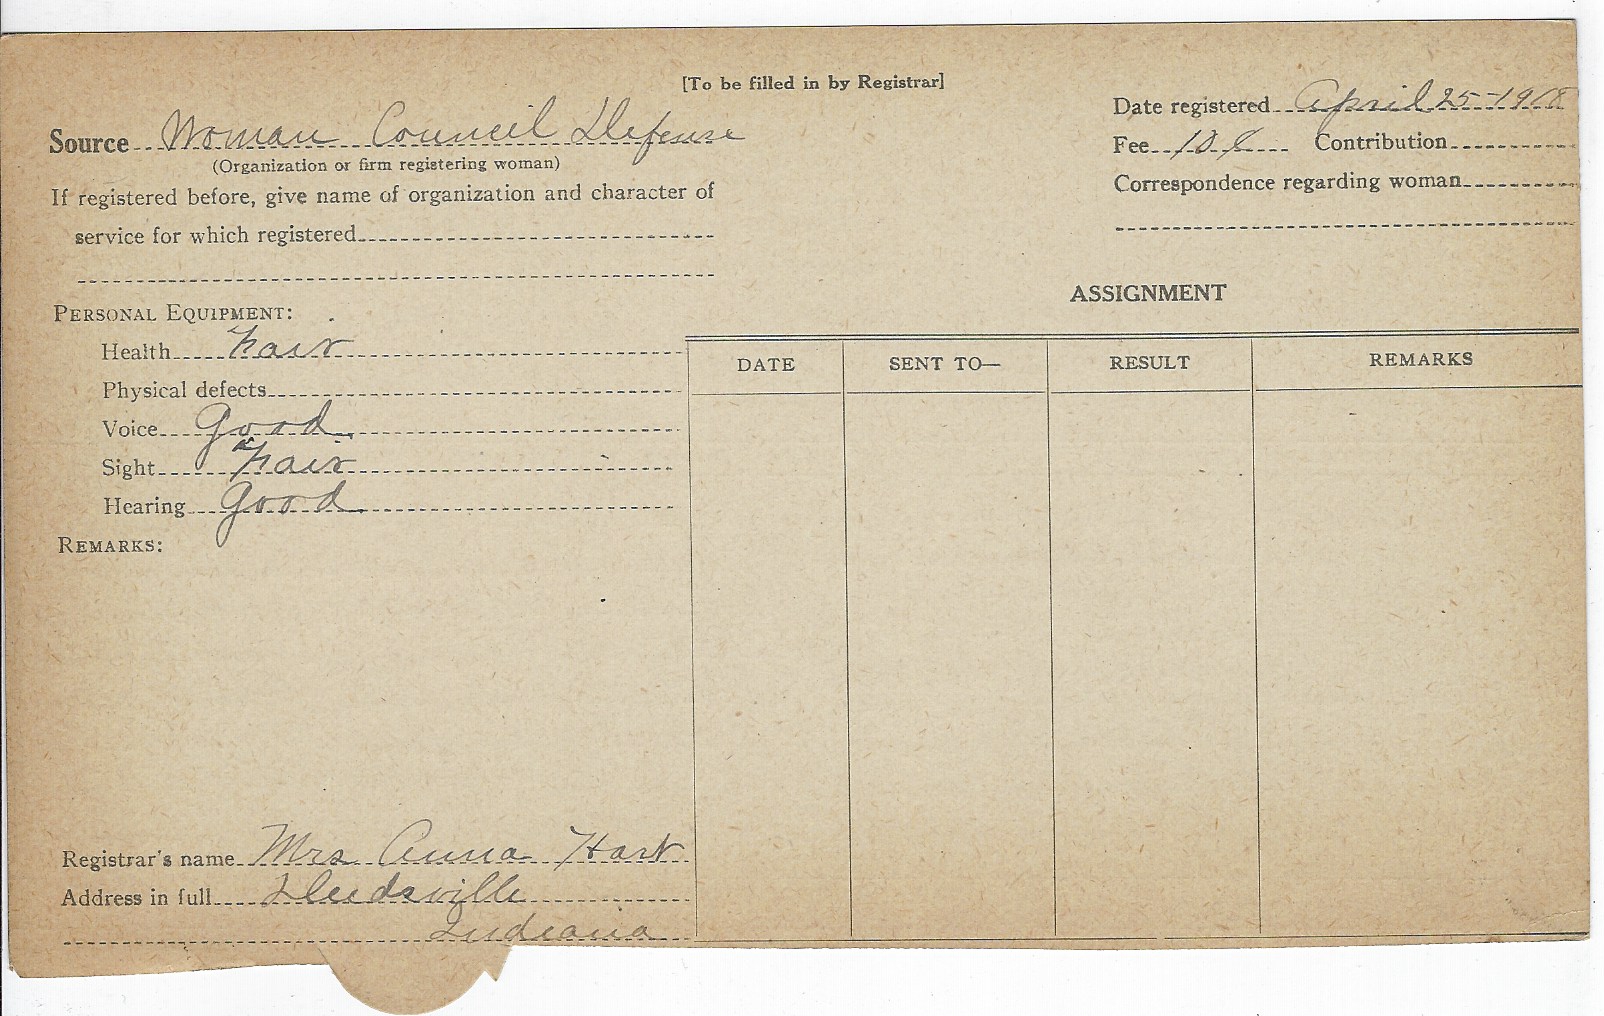 [To be filled in by Registrar]
Source Woman Council Defense
(Organization or firm registering woman)
If registered before, give name of organization and character of
service for which registered
Date registered April 25-1918
Fee 10¢ Contribution
Correspondence regarding woman
PERSONAL EQUIPMENT:
Health Fair
Physical defects
Voice Good
Sight Fair
Hearing Good
REMARKS:
ASSIGNMENT
DATE SENT TO— RESULT REMARKS
Registrar's name Mrs Anna Hart
Address in full Deedsville
Indiana